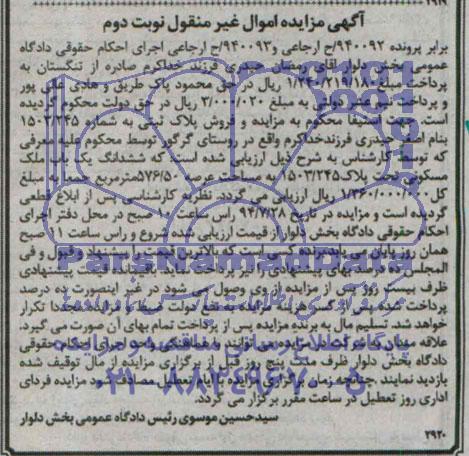 ۲۹۱۹
آگهی مزایده اموال غیر منقول نوبت دوم
برابر پرونده ۹۴۰۰۹۲/ح ارجاعی و۹۴۰۰۹۳/ح ارجاعی اجرای احکام حقوقی دادگاه
عمومی بخش دلوار آقای رمضان حیدری فرزند خداکرم صادره از تنگستان به
پرداخت مبلغ ریال در حق محمود پاک طریق و هادی عالی پور
و پرداخت نیم عشر دولتی به مبلغ ۳/۰۰۰/۰۲۰ ریال در حق دولت محکوم گردیده
است. جهت استیفا محکوم به مزایده و فروش پلاک ثبتی به شماره ۱۵۰۳/۲۴۵
بنام حیدری فرزند خداکرم واقع در روستای گرگور توسط محکوم علیه معرفی
که توسط کارشناس به شرح ذیل ارزیابی شده است که ششدانگ یک باب ملک
مسکونی تحت پلاک ۱۵۰۳/۲۴۵ به مساحت عرصه ۵۷۶/۵۰ مترمربع به مبلغ
کل ریال ارزیابی می گردد. نظریه کارشناسی پس از ابلاغ قطعی
گردیده است و مزایده در تاریخ ۹۴/۷/۲۸ راس ساعت ۱۰ صبح در محل دفتر اجرای
احکام حقوقی دادگاه بخش دلوار از قیمت ارزیابی شده شروع و راس ساعت ۱۱ صبح
همان روز پایان می یابد. برنده کسی است که بالاترین قیمت را پیشنهاد و قبول و فی
المجلس ده درصد بهای پیشنهادی را نیز پرداخت نماید. باقیمانده قیمت پیشنهادی
ظرف بیست روز پس از مزایده از وی وصول می شود در غیر اینصورت ده درصد
پرداخت شده پس از کسر هزینه مزایده به نفع دولت ضبط و مزایده مجددا تکرار
خواهد شد. تسلیم مال به برنده مزایده پس از پرداخت تمام بهای آن صورت می گیرد.
علاقه مندان به شرکت در مزایده می توانند با هماهنگی واحد اجرای احکام حقوقی
دادگاه بخش دلوار ظرف مدت پنج روز قبل از برگزاری مزایده از مال توقیف شده
بازدید نمایند. چنانچه زمان برگزاری مزایده با ایام تعطیل مصادف شود مزایده فردای
اداری روز تعطیل در ساعت مقرر برگزار می گردد.
سیدحسین موسوی رئیس دادگاه عمومی بخش دلوار
۲۹۲۰
ParsNamadData
۰۲۱-۸۸۳۴۹۶۷۰-۵